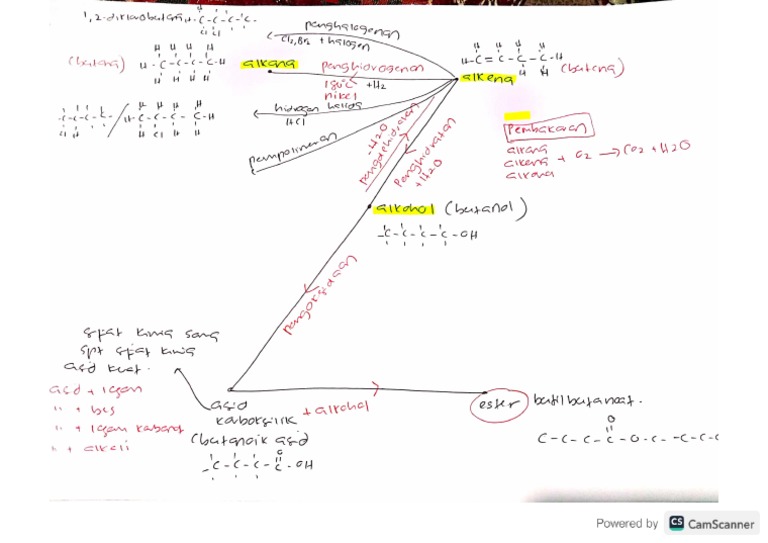 1,2-diklorobutana
penghalogenan
Cl2, Br2 + halogen
(butana)
alkana
penghidrogenan
180°C + H2
nikel
alkena
(butena)
H-C=C-C-C-H
H-C-C-C-C-H
hidrogen halida
HCl
pempolimeran
- H2O
pengdehidratan
Penghidratan
+ H2O
Pembakaran
alkana
alkena + O2 → CO2 + H2O
alkohol (butanol)
-C-C-C-C-OH
pengoksidaan
sifat kimia sama
spt sifat kimia
asid kuat.
asid + logam
" + bes
" + logam karbonat
" + alkali
asid
karboksilik
(butanoik asid)
-C-C-C-C-OH
O
+ alkohol
ester
butil butanoat.
O
C-C-C-C-O-C-C-C-C
Powered by CS CamScanner